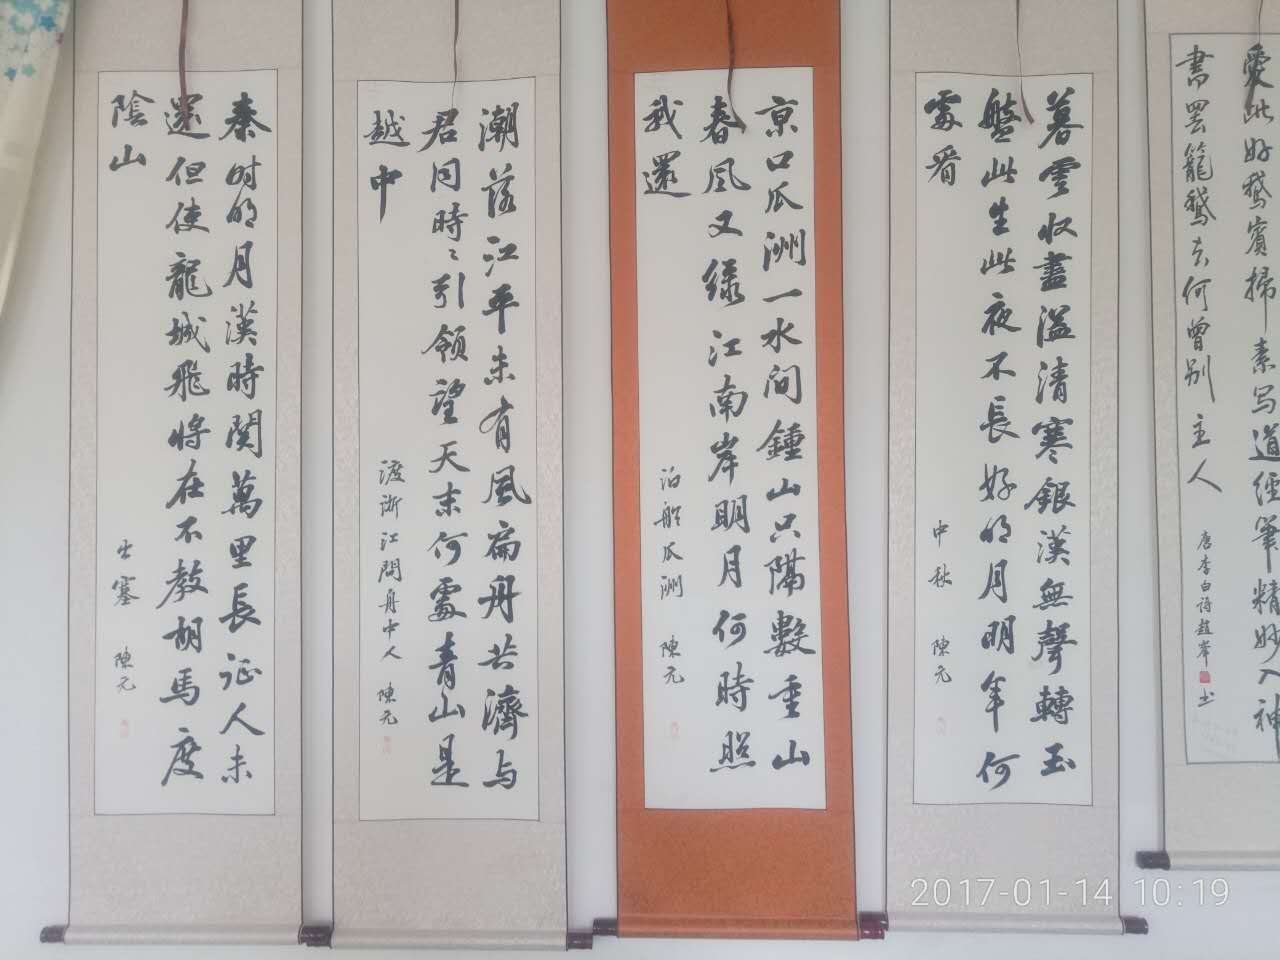 愛此好鵝賓掃素写道經筆精妙入神
書罢籠鵝去何曾别主人
唐李白詩趙岸书
暮雲收盡溢清寒銀漢無聲轉玉
盤此生此夜不長好明月明年何
處看
中秋 陳元
京口瓜洲一水间鍾山只隔數重山
春風又绿江南岸明月何時照
我還
泊船瓜洲 陳元
潮落江平未有風扁舟共濟与
君同時〻引領望天末何處青山是
越中
渡浙江問舟中人 陳元
秦时明月漢時関萬里長征人未
還但使龍城飛将在不教胡馬度
陰山
出塞 陳元
2017-01-14 10:19